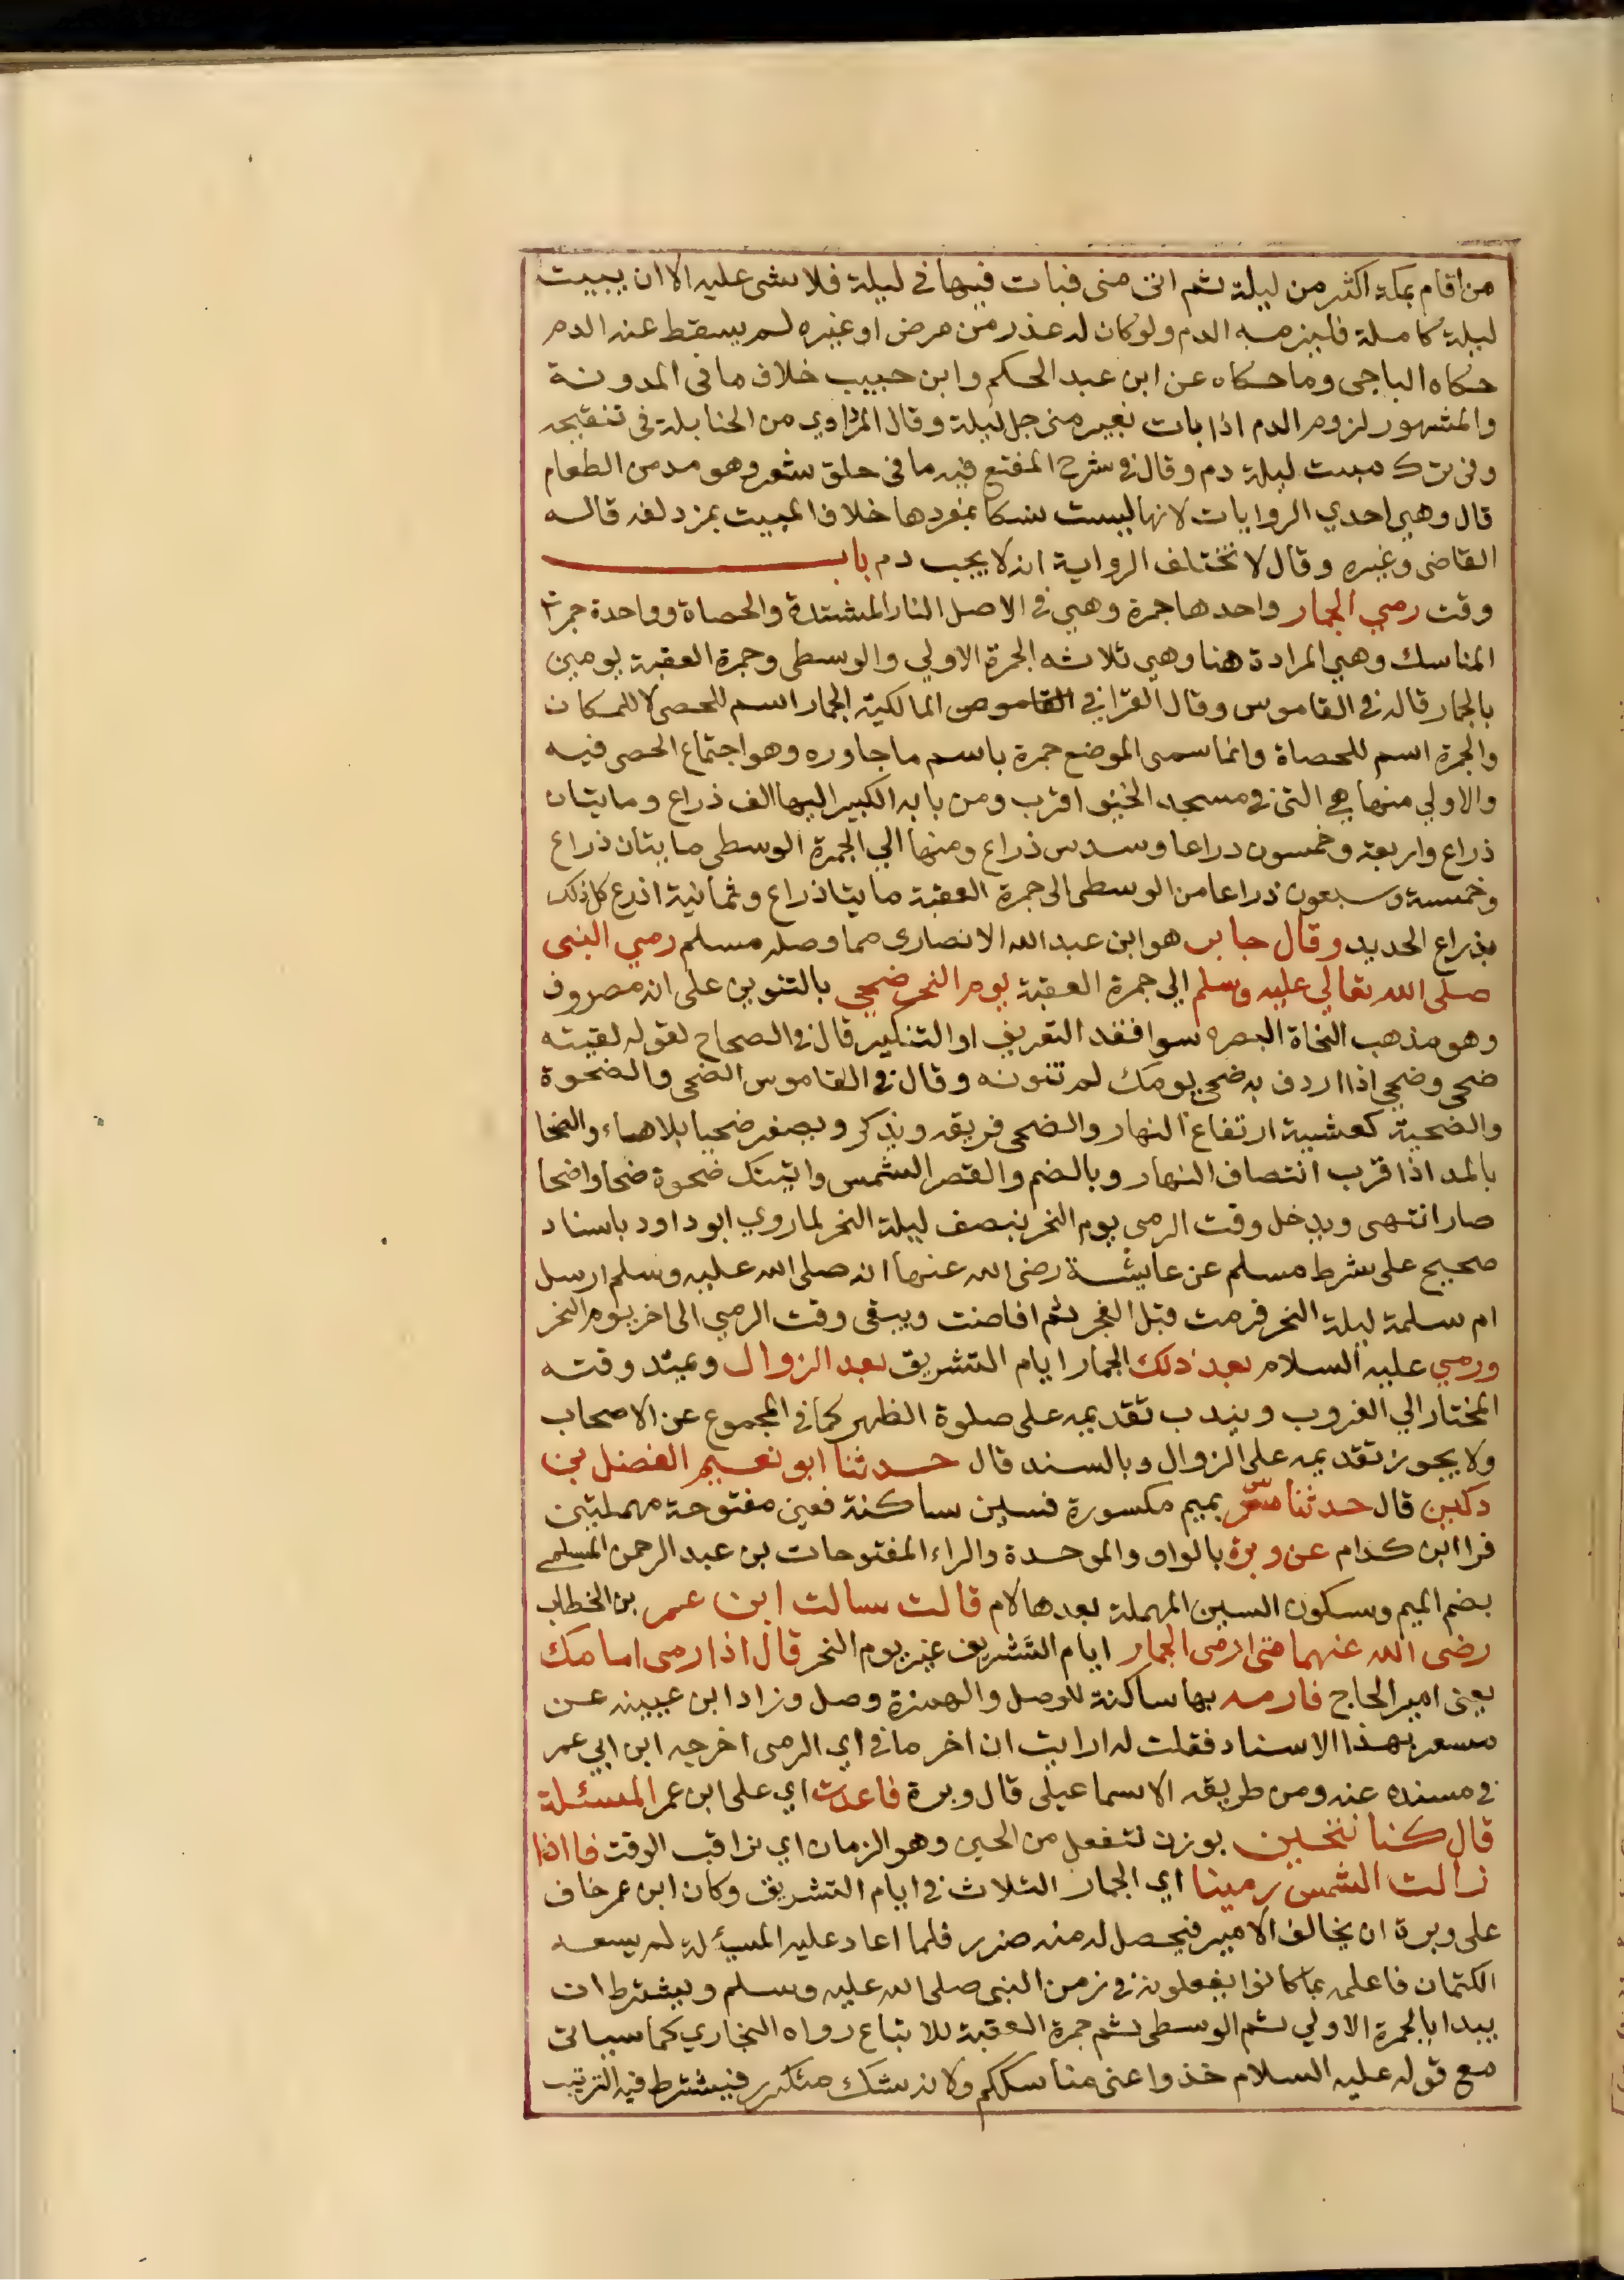 من اقام بمكة اكثر من ليلة ثم اتى منى فبات فيها في ليلة فلا شى عليه الا ان يبيت
ليلة كاملة فليزمه الدم ولو كان له عذر من مرض او غيره لم يسقط عنه الدم
حكاه الباجى وما حكاه عن ابن عبد الحكم وابن حبيب خلاف ما في المدونة
والمشهور لزوم الدم اذا بات بغير منى جل ليلة وقال المرداوي من الحنابلة في تنقيحه
وفي ترك مبيت ليلة دم وقال في شرح المقنع فيه ما في حلق شعرة وهو مد من الطعام
قال وهي احدي الروايات لانها ليست نسكا بمفردها خلاف المبيت بمزدلفه قاله
القاضى وغيره وقال لا تختلف الرواية انه لا يجب دم باب
وقت رمي الجمار واحدها جمرة وهي في الاصل النار المشتدة والحصاة وواحدة جمرات
المناسك وهي المرادة هنا وهي ثلاثه الجمرة الاولي والوسطى وجمرة العقبة يومين
بالجمار قاله في القاموس وقال القرافي المالكية الجمار اسم للحصى لا للمكان
والجمرة اسم للحصاة وانما سمى الموضع جمرة باسم ما جاوره وهو اجتماع الحصى فيه
والاولي منها هي التى في مسجد الخيف اقرب ومن بابه الكبير اليها الف ذراع ومايتان
ذراع واربعة وخمسون دراعا وسدس ذراع ومنها الي الجمرة الوسطى مايتان ذراع
وخمسة وسبعون ذراعا من الوسطى الى جمرة العقبة مايتا ذراع وثمانية اذرع كل ذلك
بذراع الحديد وقال جابر هو ابن عبد الله الانصارى مما وصله مسلم رمي النبى
صلى الله تعالي عليه وسلم الي جمرة العقبة يوم النحر ضحي بالتنوين على انه مصروف
وهو مذهب النخاة البصره سوا فقد التعريف او التنكير قال في الصحاح لقوله لقيته
ضحى وضحي اذا اردف به ضحى يومك لم تنونه وقال في القاموس الضحى والضحوة
والضحية كعشيية ارتفاع النهار والضحى فريقه ويذكر ويصغر ضحيا بلا هاء والضحا
بالمد اذا قرب انتصاف النهار وبالضم والقصر الشمس واتيتك ضحوة ضحا واضحا
صار انتهى ويدخل وقت الرمى يوم النحر بنصف ليلة النحر لما روي ابو داود باسناد
صحيح على شرط مسلم عن عايشة رضى الله عنها انه صلى الله عليه وسلم ارسل
ام سلمة ليلة النحر فرمت قبل الفجر ثم افاضت ويبقى وقت الرمي الى اخر يوم النحر
ورمي عليه السلام بعد ذلك الجمار ايام التشريق بعد الزوال ويمتد وقته
المختار الي الغروب ويندب تقديمه على صلوة الظهر كما في المجموع عن الاصحاب
ولا يجوز تقديمه على الزوال وبالسند قال حدثنا ابو نعيم الفضل بن
دكين قال حدثنا مسعر بميم مكسورة فسين ساكنة فعين مفتوحة مهملتين
فرا ابن كدام عن وبرة بالواو والموحدة والراء المفتوحات بن عبد الرحمن المسلمي
بضم الميم وسكون السين المهملة بعدها لام قالت سالت ابن عمر بن الخطاب
رضى الله عنهما متى ارمى الجمار ايام التشريق غير يوم النحر قال اذا رمى امامك
يعنى امير الحاج فارمه بها ساكنة للوصل والهمزة وصل وزاد ابن عيينه عن
مسعر بهذا الاسناد فقلت له ارايت ان اخر مافي اي الرمى اخرجه ابن ابي عمر
في مسنده عنه ومن طريقه الاسماعيلى قال وبرة فاعدت اي على ابن عمر المسئلة
قال كنا نتحين بوزن نتفعل من الحين وهو الزمان اي نراقب الوقت فااذا
زالت الشمس رمينا اي الجمار الثلاث في ايام التشريق وكان ابن عمر خاف
على وبرة ان يخالف الامير فيحصل له منه ضرر فلما اعاد عليه المسئلة لم يسعه
الكتمان فاعلمه بما كانوا يفعلونه في زمن النبى صلى الله عليه وسلم ويشترط ان
يبدا بالجمرة الاولي ثم الوسطى ثم جمرة العقبة للاتباع رواه البخاري كما سياتى
مع قوله عليه السلام خذوا عنى مناسككم ولانه نسك متكرر فيشترط فيه الترتيب